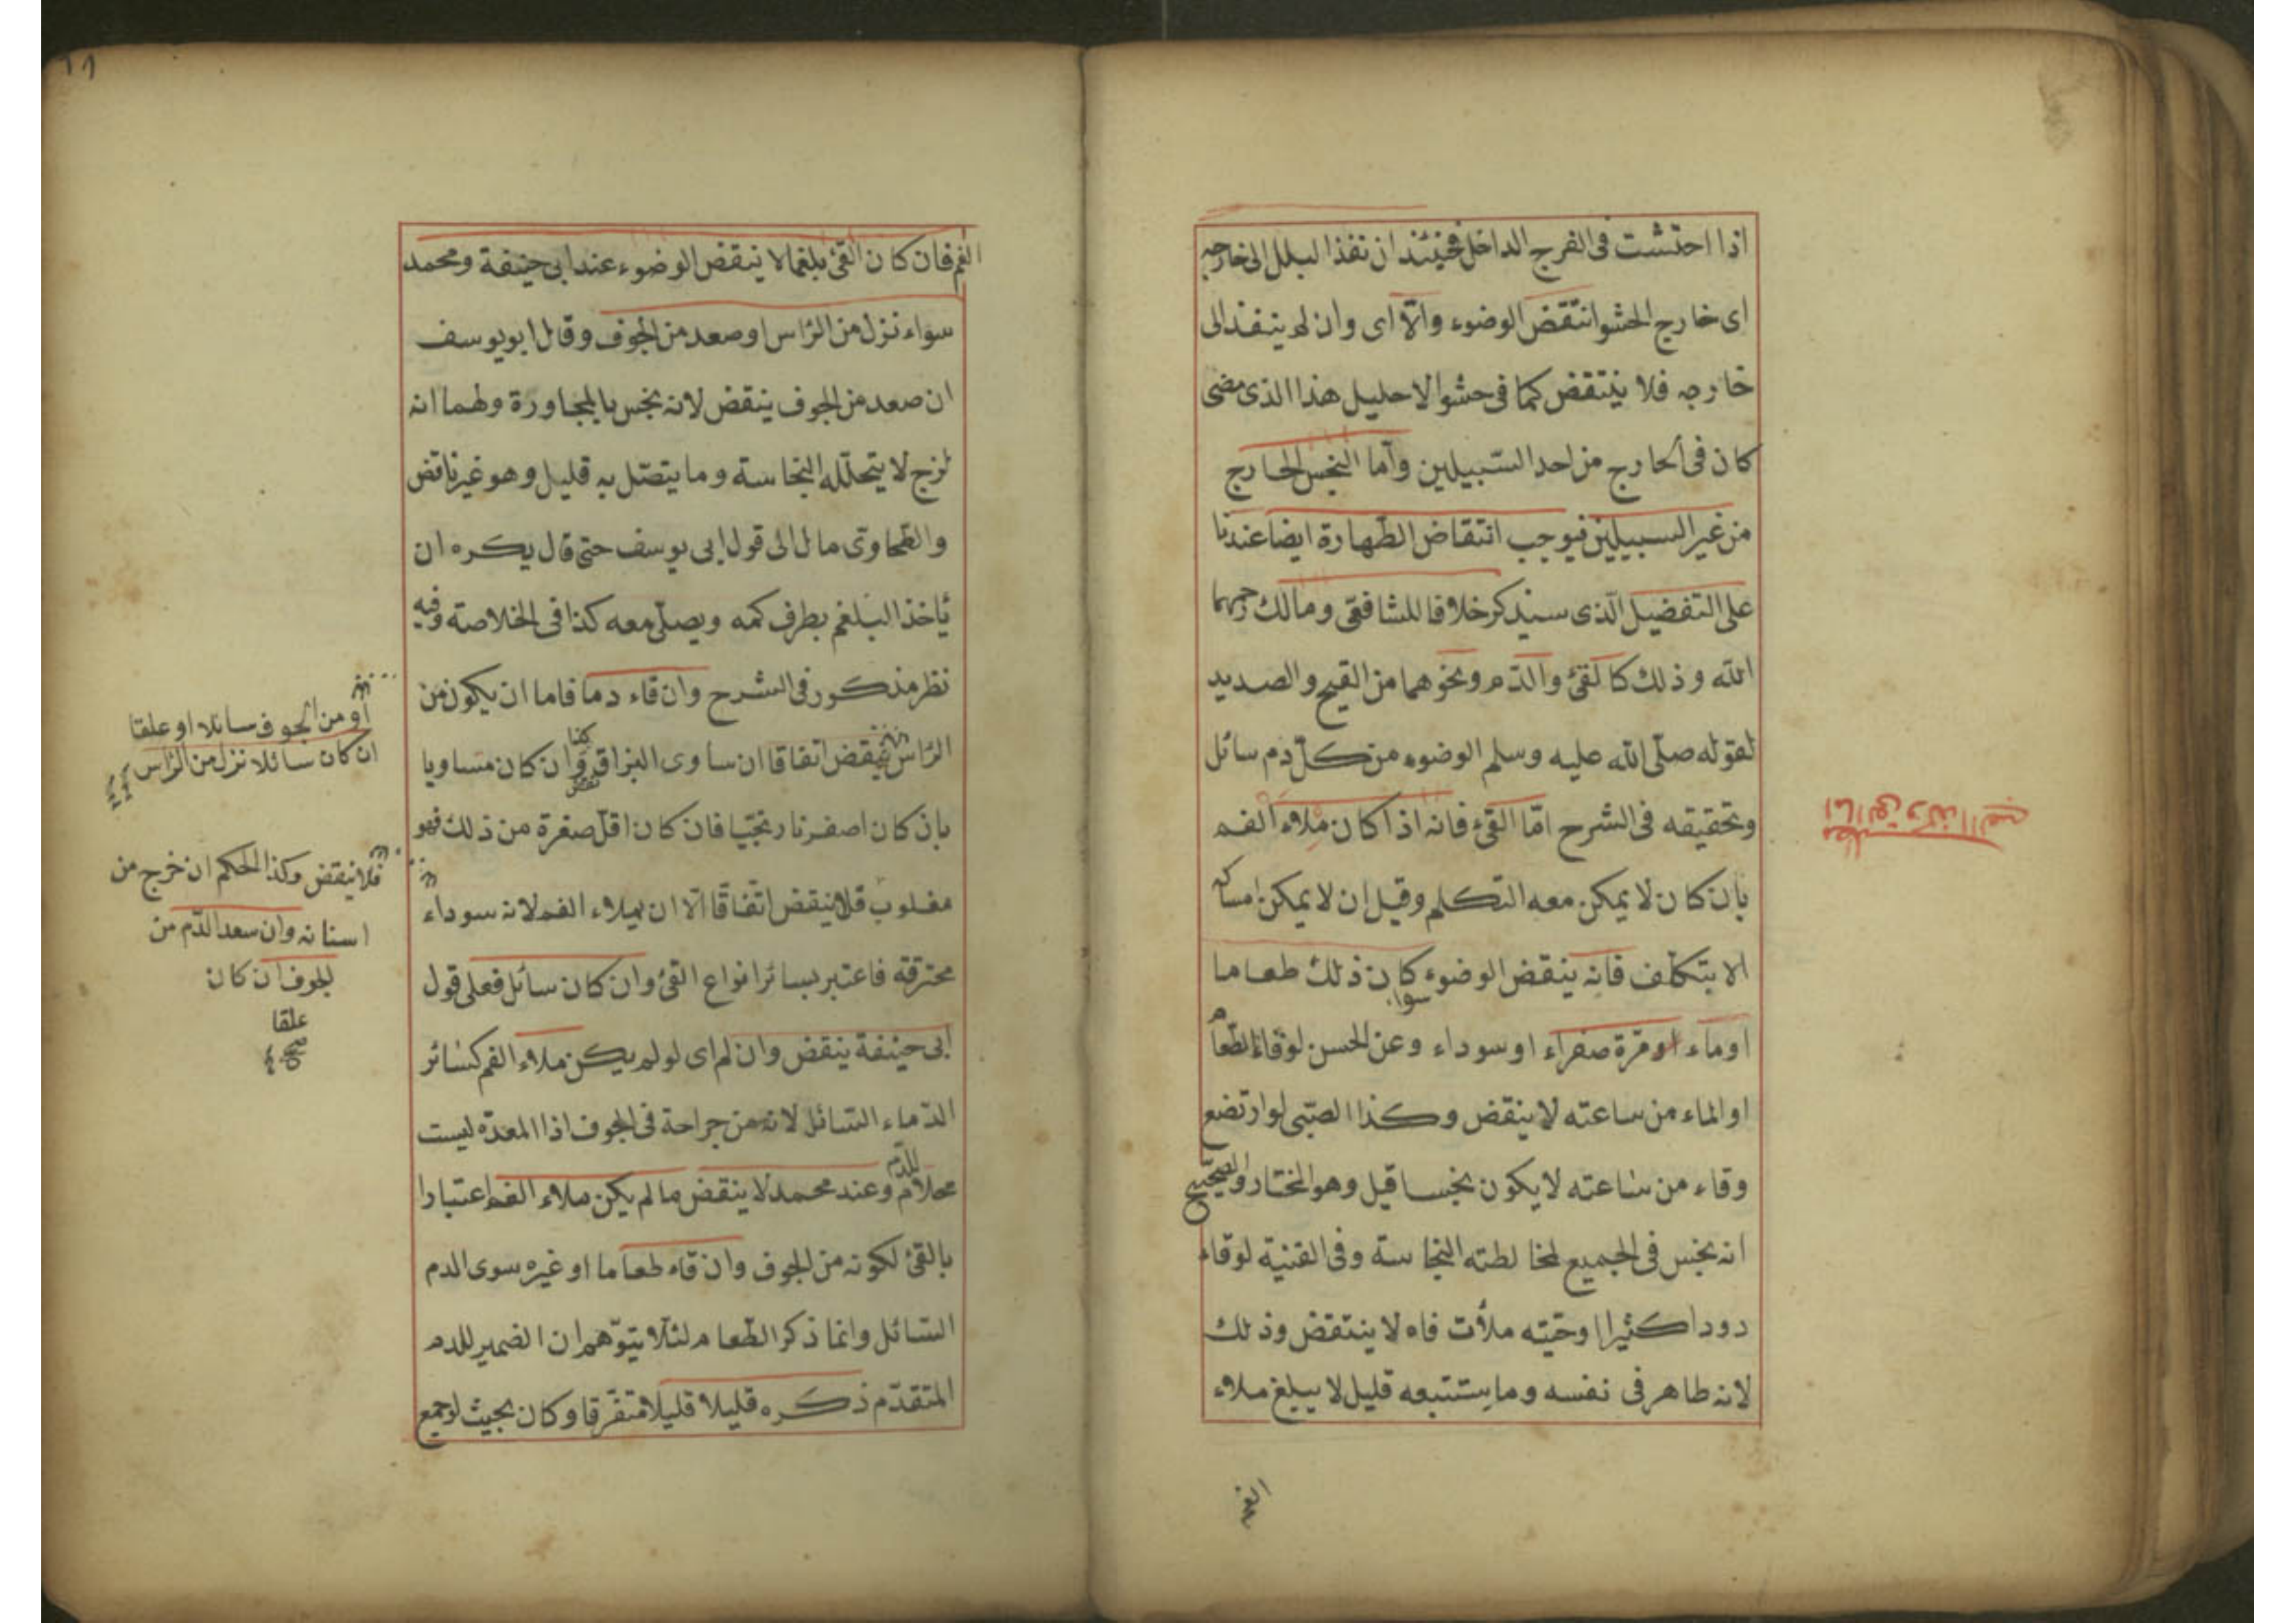 اذا احتشت فى الفرج الداخل فحينئذ ان نفذ البلل الى خارجه
اى خارج الحشو انتقض الوضوء والّا اى وان لم ينفذ الى
خارجه فلا ينتقض كما فى حشو الاحليل هذا الذى مضى
كان فى الخارج من احد السّبيلين وأما النجس الخارج
من غير السبيلين فيوجب انتقاض الطّهارة ايضا عندنا
على التفضيل الّذى سنيذكر خلافا للشافعّى ومالك رحمهما
الله وذلك كالقئ والدّم ونحوهما من القيح والصديد
لقوله صلّى الله عليه وسلم الوضوء من كلّ دم سائل
وتحقيقه فى الشرح امّا القئ فانه اذا كان ملاء الفم
بان كان لا يمكن معه التكلم وقيل ان لا يمكن امساكه
الا بتكلّف فانه ينقض الوضوء سواء كان ذلك طعاما
او ماء او مرّة صفراء او سوداء وعن الحسن لو قاء الطّعام
او الماء من ساعته لا ينقض وكذا الصّبى لو ارتضع
وقاء من ساعته لا يكون نجسا قيل وهو المختار والصّحيح
انه نجس فى الجميع لمخالطته النجاسة وفى القنية لو قاء
دودا كثيرا اوحيّته ملأت فاه لا ينتقض وذلك
لانه طاهر فى نفسه وما يستتبعه قليل لا يبلغ ملاء
الفم
الفم فان كان القئ بلغما لا ينقض الوضوء عند ابى حنيفة ومحمد
سواء نزل من الرّاس او صعد من الجوف وقال ابو يوسف
ان صعد من الجوف ينقض لانه نجس بالمجاورة ولهما انه
لزج لا يتحلّله النجاسة وما يتصّل به قليل وهو غير ناقض
والطحاوى مال الى قول ابى يوسف حتى قال يكره ان
يأخذ البلغم بطرف كمه ويصلّى معه كذا فى الخلاصة وفيه
نظر مذكور فى الشرح وان قاء دما فاما ان يكون من
الرّاس ينقض اتفاقا ان ساوى البزاق وان كان مساويا
بان كان اصفر نارنجيّا فان كان اقلّ صفرة من ذلك فهو
مغلوب فلا ينقض اتّفاقا الّا ان يملاء الفم لانه سوداء
محترقة فاعتبر بسائر انواع القئ وان كان سائل فعلى قول
ابى حنيفة ينقض وان لم اى لو لم يكن ملاء الفم كسائر
الدّماء السّائل لانه من جراحة فى الجوف اذا المعدة ليست
محلا للدّم وعند محمد لا ينقض ما لم يكن ملاء الفم اعتبارا
بالقئ لكونه من الجوف وان قاء طعاما او غيره سوى الدم
السّائل وانما ذكر الطّعام لئلّا يتوّهم ان الضمير للدم
المتقدّم ذكره قليلا قليلا متفّرقا وكان بحيث لو جمع
او من الجوف سائلا او علقا
ان كان سائلا نزل من الرّاس
فلا ينقض وكذا الحكم ان خرج من
اسنانه وان سعد الدّم من
الجوف ان كان
علقا
صح